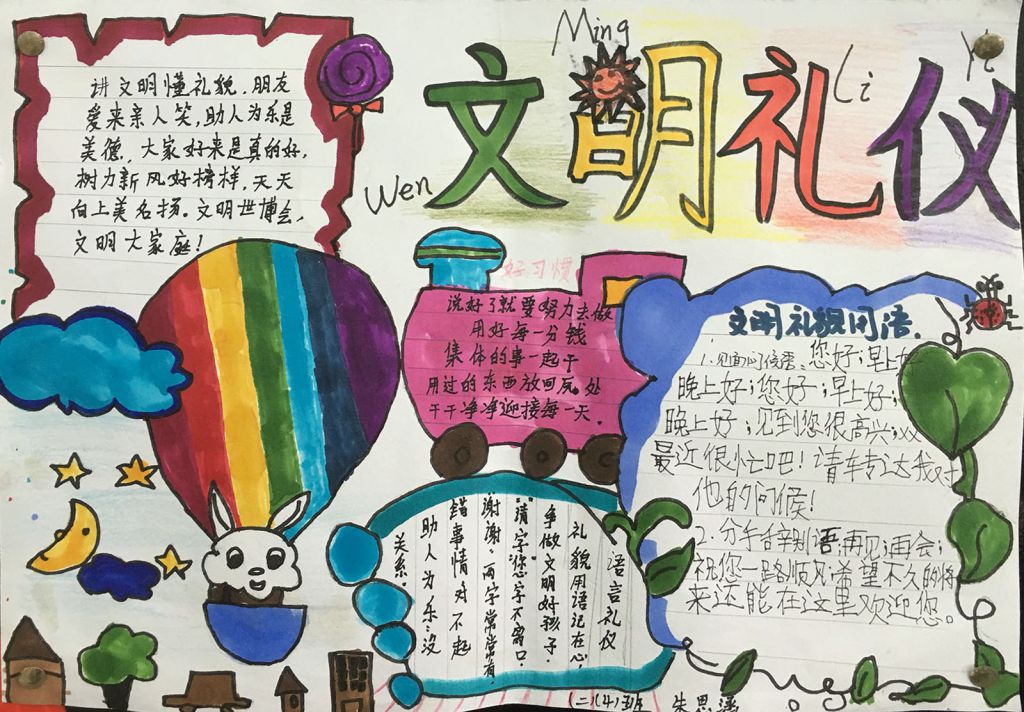 Wen Ming Li Yi
文明礼仪
讲文明懂礼貌,朋友
爱来亲人笑,助人为乐是
美德,大家好来是真的好,
树力新风好榜样,天天
向上美名扬。文明世博会,
文明大家庭!
好习惯
说好了就要努力去做
用好每一分钱
集体的事一起干
用过的东西放回原处
干干净净迎接每一天.
语言礼仪
礼貌用语记在心,
争做文明好孩子.
"请"字"您"字不离口,
谢谢、两字常常有,
错事情对不起
助人为乐:没
关系
文明礼貌用语.
1.见面问候语:您好;早上好
晚上好;您好;早上好;
晚上好;见到您很高兴;xx
最近很忙吧!请车专达我对
他的问候!
2.分手辞别语:再见;再会;
祝您一路顺风;希望不久的将
来还能在这里欢迎您。
(二)(4)班 朱思涵